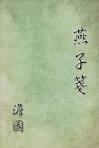 燕子箋
澹園